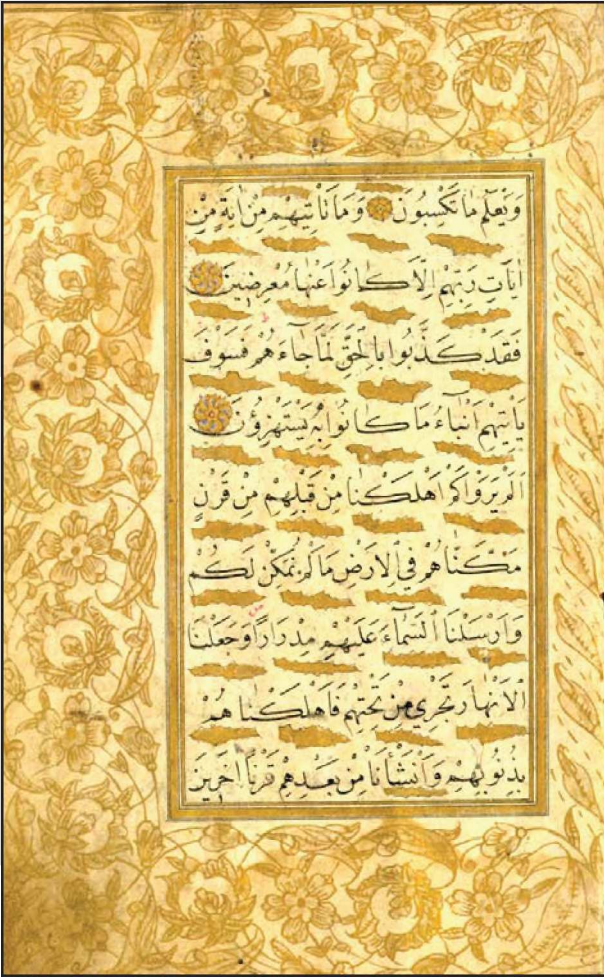 وَيَعْلَمُ مَا تَكْسِبُونَ وَمَا تَأْتِيهِمْ مِنْ اٰيَةٍ مِنْ
اٰيَاتِ رَبِّهِمْ اِلَّا كَانُوا عَنْهَا مُعْرِضِينَ
فَقَدْ كَذَّبُوا بِالْحَقِّ لَمَّا جَاۤءَهُمْ فَسَوْفَ
يَأْتِيهِمْ اَنْبَاۤءُ مَا كَانُوا بِهِ يَسْتَهْزِؤُنَ
اَلَمْ يَرَوْا كَمْ اَهْلَكْنَا مِنْ قَبْلِهِمْ مِنْ قَرْنٍ
مَكَّنَّاهُمْ فِي الْاَرْضِ مَا لَمْ نُمَكِّنْ لَكُمْ
وَاَرْسَلْنَا السَّمَاۤءَ عَلَيْهِمْ مِدْرَارًا وَجَعَلْنَا
الْاَنْهَارَ تَجْرِي مِنْ تَحْتِهِمْ فَاَهْلَكْنَاهُمْ
بِذُنُوبِهِمْ وَاَنْشَأْنَا مِنْ بَعْدِهِمْ قَرْنًا اٰخَرِينَ